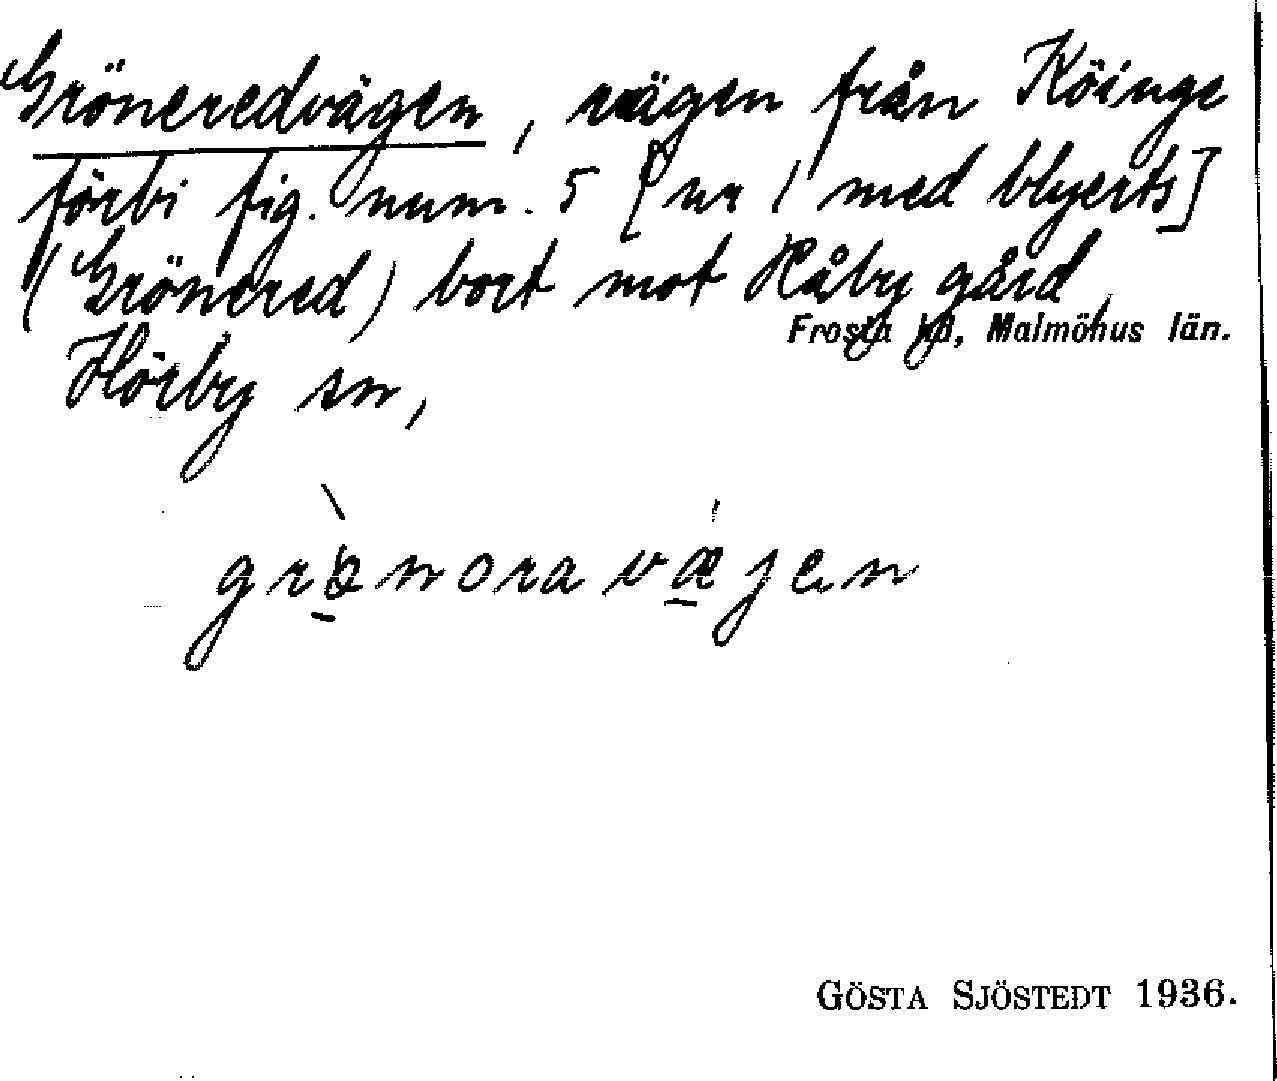 Gröneredvägen, vägen från Köinge
förbi fig. num. 5 [nr 1 med blyerts]
(Grönered) bort mot Råby gård,
Frosta hd, Malmöhus län.
Hörby sn,
GÖSTA SJÖSTEDT 1936.